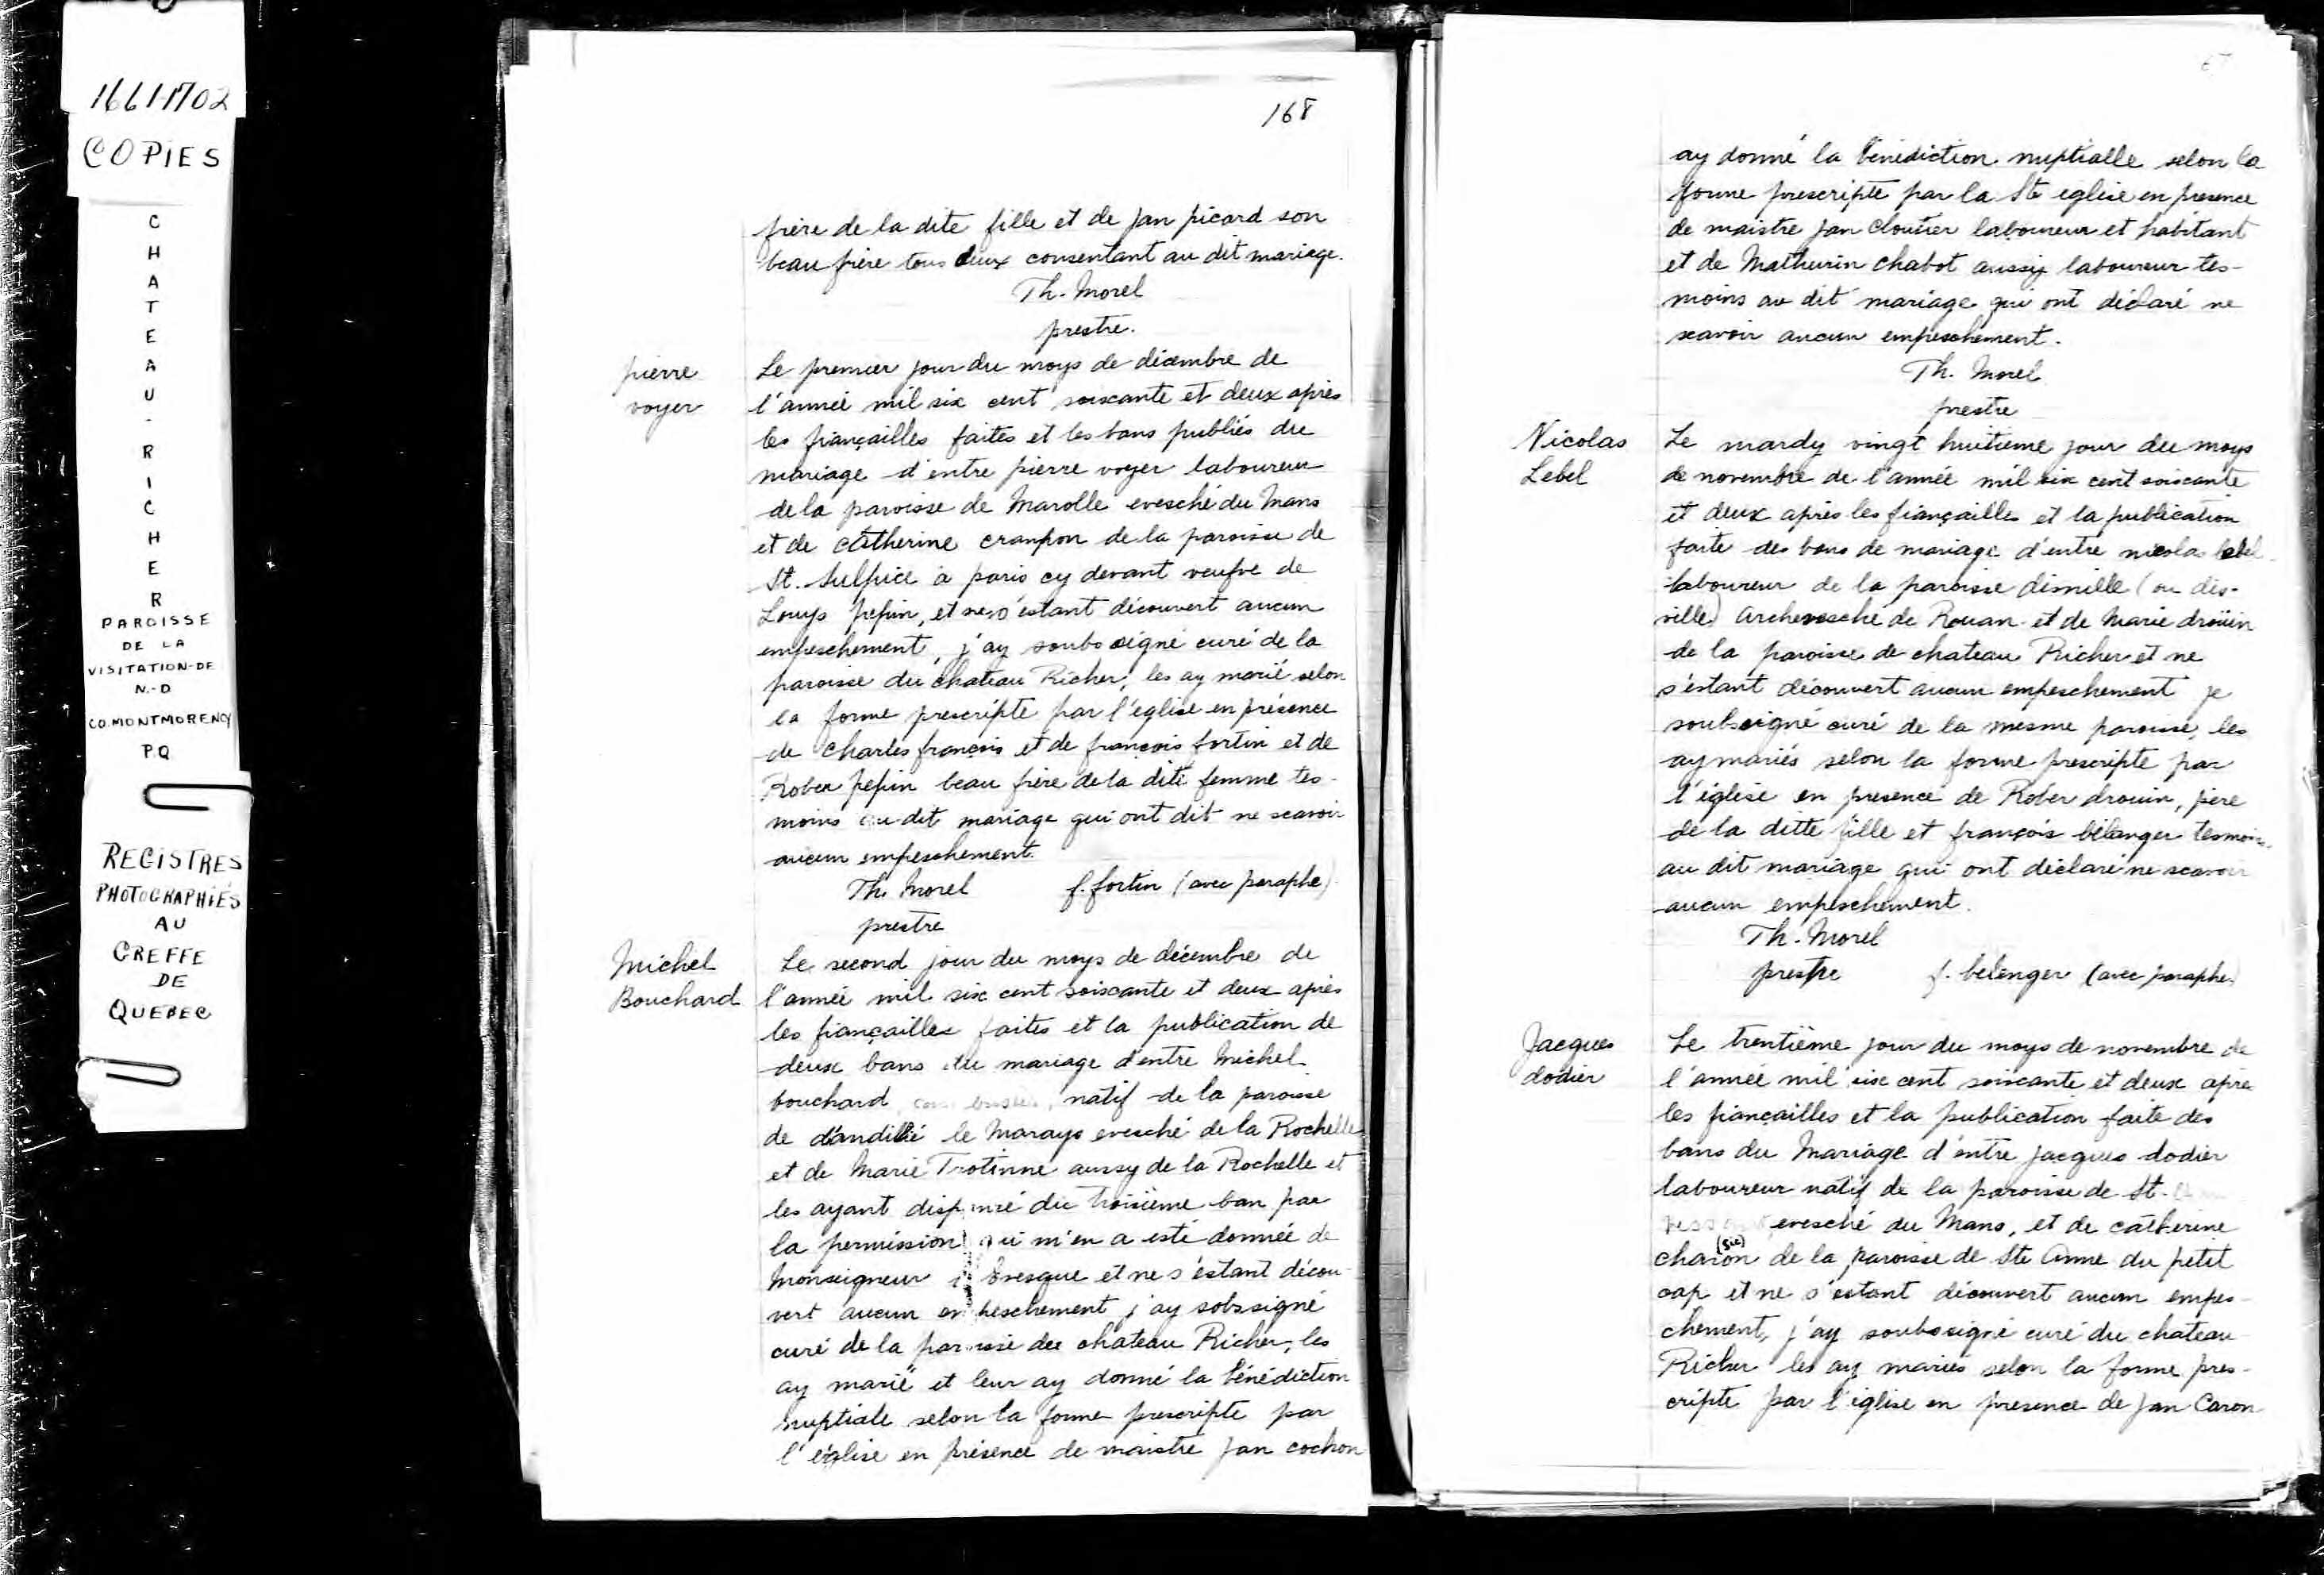 1661-1702
COPIES
CHATEAU-RICHER
PAROISSE
DE LA
VISITATION-DE
N.-D
CO. MONTMORENCY
P.Q
REGISTRES
PHOTOGRAPHIÉS
AU
GREFFE
DE
QUEBEC
168
frère de la dite fille et de jan picard son
beau frère tous deux consentant au dit mariage.
Th. Morel
prestre.
pierre
voyer
Le premier jour du moys de décembre de
l'année mil six cent soixante et deux après
les fiançailles faites et les bans publiés du
mariage d'entre pierre voyer laboureur
de la paroisse de Marolle evesché du Mans
et de catherine crampon de la paroisse de
St. Sulpice à paris cy devant veufve de
Louys pepin, et ne s'estant découvert aucun
empeschement, j'ay soubsigné curé de la
paroisse du chateau Richer, les ay marié selon
la forme prescripte par l'eglise en présence
de Charles françois et de françois fortin et de
Rober pepin beau frère de la dite femme tes-
moins au dit mariage qui ont dit ne scavoir
aucun empeschement.
Th. Morel f. fortin (avec paraphe)
prestre
Michel
Bouchard
Le second jour du moys de décembre de
l'année mil six cent soixante et deux après
les fiançailles faites et la publication de
deux bans du mariage d'entre Michel
bouchard, natif de la paroisse
de d'andillié le Marays evesché de la Rochelle
et de Marie Trotinne aussy de la Rochelle et
les ayant dispensé du troisième ban par
la permission qui m'en a esté donnée de
Monseigneur Evesque et ne s'estant décou-
vert aucun empeschement j'ay sobsigné
curé de la paroisse du chateau Richer, les
ay marié et leur ay donné la bénédiction
nuptiale selon la forme prescripte par
l'église en présence de maistre Jan cochon
ay donné la bénédiction nuptialle selon la
forme prescripte par la Ste eglise en presence
de maistre Jan Cloutier laboureur et habitant
et de Mathurin Chabot aussy laboureur tes-
moins au dit mariage qui ont déclaré ne
scavoir aucun empeschement.
Th. Morel
prestre
Nicolas
Lebel
Le mardy vingt huitieme jour du moys
de novembre de l'année mil six cent soixante
et deux après les fiançailles et la publication
faite des bans de mariage d'entre nicolas lebel
laboureur de la paroisse dimille (ou dis-
ville) Archevesché de Rouan et de Marie droüin
de la paroisse de chateau Richer et ne
s'estant découvert aucun empeschement je
soubsigné curé de la mesme paroisse, les
ay mariés selon la forme prescripte par
l'église en presence de Rober drouin, père
de la ditte fille et françois bélanger tesmoins
au dit mariage qui ont déclaré ne scavoir
aucun empeschement.
Th. Morel
prestre f. belenger (avec paraphe)
Jacques
dodier
Le trentième jour du moys de novembre de
l'année mil six cent soixante et deux apre
les fiançailles et la publication faite des
bans du Mariage d'entre jacques dodier
laboureur natif de la paroisse de St.
evesché du Mans, et de catherine
charon (sic) de la paroisse de Ste Anne du petit
cap et ne s'estant découvert aucun empes-
chement, j'ay soubsigné curé du chateau
Richer les ay mariés selon la forme pres-
cripte par l'église en présence de Jan Caron